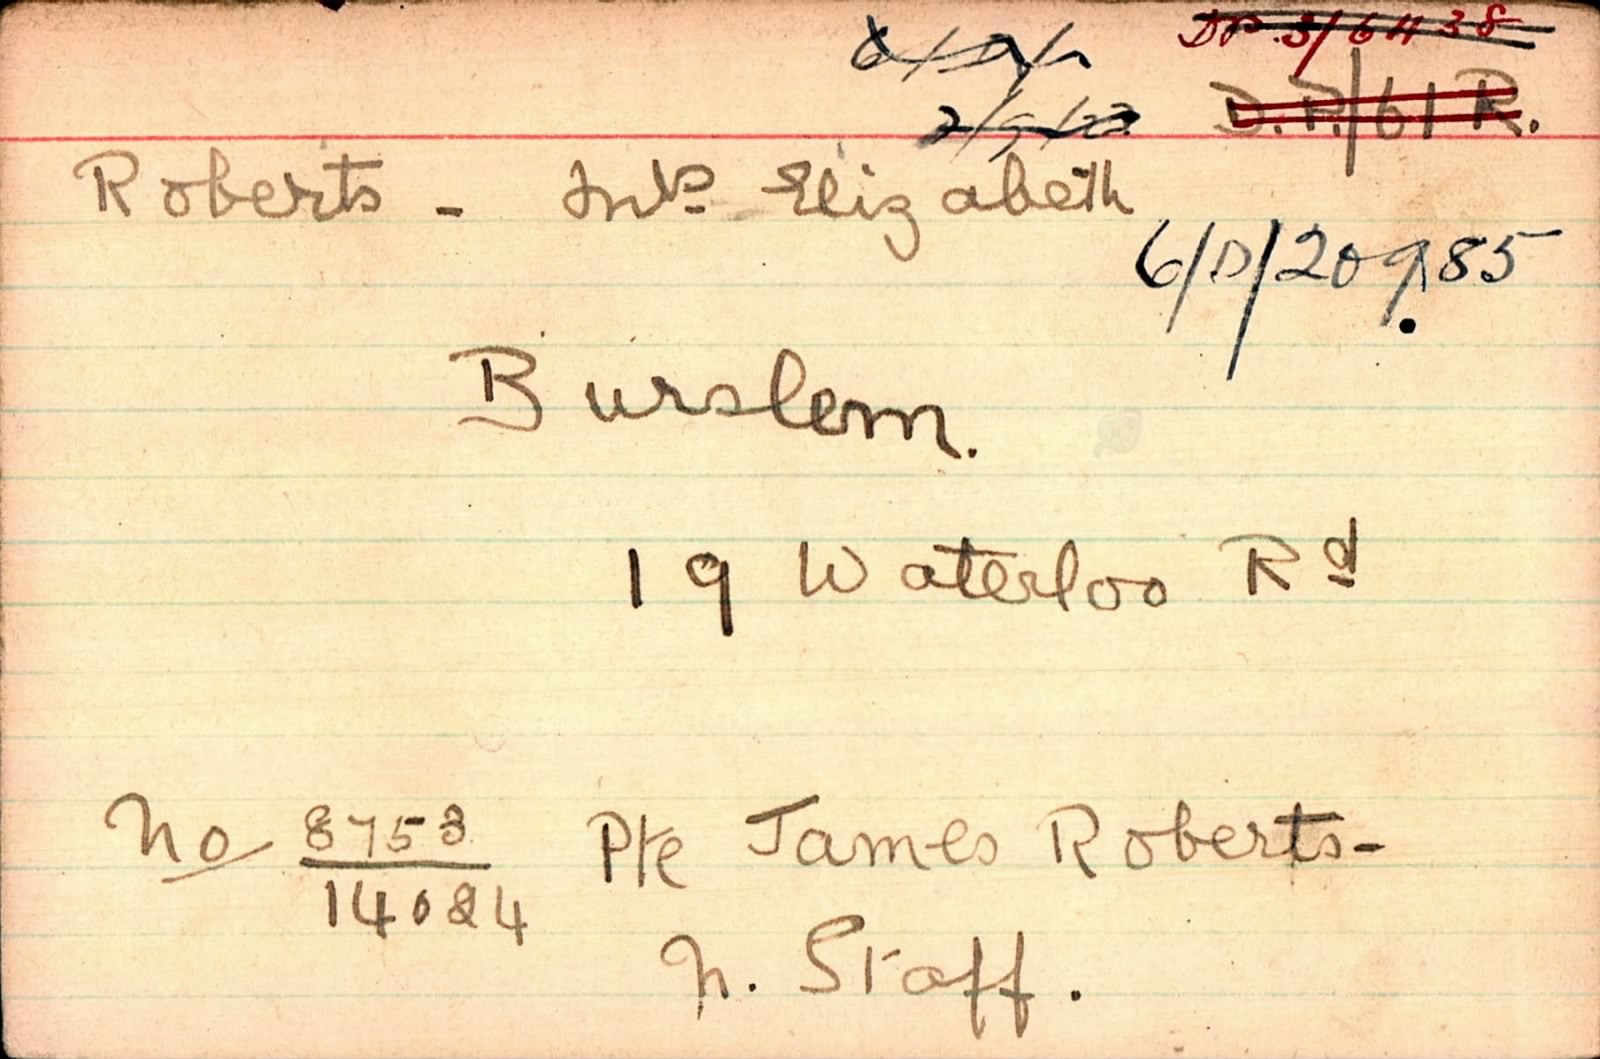 DP.3/6438
6/D/
D.P./61 R.
Roberts - Mrs Elizabeth
6/D/20985
Burslem.
19 Waterloo Rd
No 8753
14024
Pte James Roberts-
N. Staff.